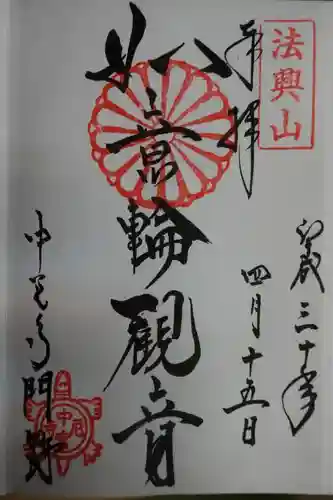 法興山
奉拝
平成三十年
四月十五日
如意輪観音
中宮寺門跡